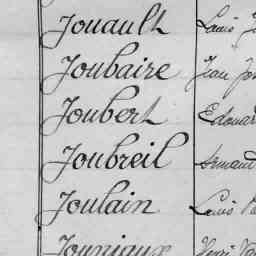 Jouault Louis
Joubaire Jean
Joubert Edouard
Joubreil Armand
Joulain Louis
Jouniaux Henri